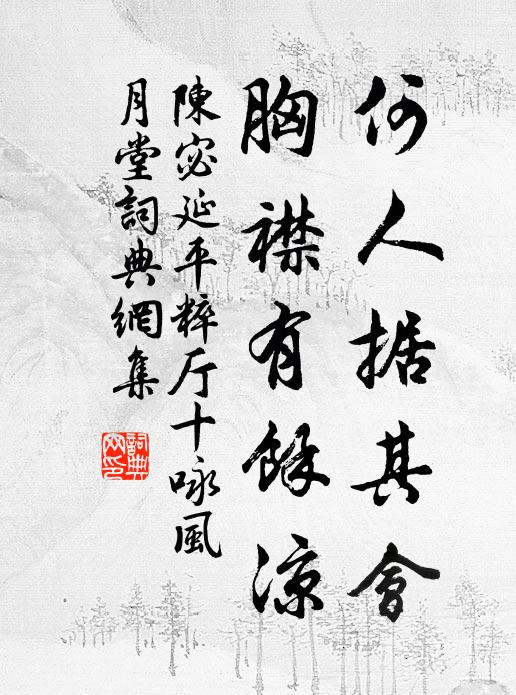 何人据其會
胸襟有餘涼
陳宓延平粹厅十咏風
月堂詞典網集
詞典网印